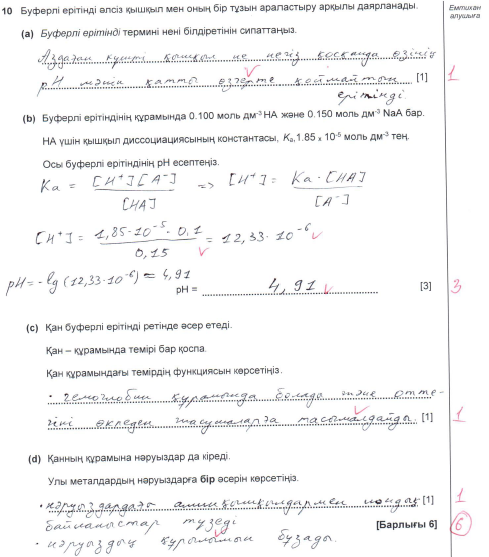 10 Буферлі ерітінді әлсіз қышқыл мен оның бір тұзын араластыру арқылы даярланады.
Емтихан алушыға
(a) Буферлі ерітінді термині нені білдіретінін сипаттаңыз.
Аздаған күшті қышқыл не негіз қосқанда өзінің
pH мәнін қатты өзгерте қоймайтын [1] 1
ерітінді
(b) Буферлі ерітіндінің құрамында 0.100 моль дм⁻³ HA және 0.150 моль дм⁻³ NaA бар.
HA үшін қышқыл диссоциациясының константасы, Kₐ,1.85 x 10⁻⁵ моль дм⁻³ тең.
Осы буферлі ерітіндінің pH есептеңіз.
Ka = [H⁺][A⁻] / [HA] => [H⁺] = Ka · [HA] / [A⁻]
[H⁺] = 1,85·10⁻⁵ · 0,1 / 0,15 = 12,33 · 10⁻⁶
pH = -lg (12,33·10⁻⁶) = 4,91
pH = 4,91 [3] 3
(c) Қан буферлі ерітінді ретінде әсер етеді.
Қан – құрамында темірі бар қоспа.
Қан құрамындағы темірдің функциясын көрсетіңіз.
· гемоглобин құрамында болады және отте-
гіні өкпеден жасушаларға тасымалдайды. [1] 1
(d) Қанның құрамына нәруыздар да кіреді.
Улы металдардың нәруыздарға бір әсерін көрсетіңіз.
· нәруыздардағы аминқышқылдармен иондық [1] 1
байланыстар түзеді [Барлығы 6] 6
· нәруыздың құрылымын бұзады.